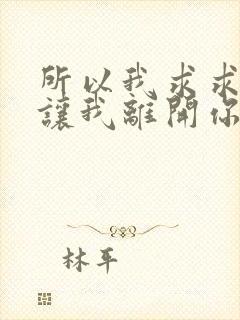 所以我求求
讓我離開你
林平